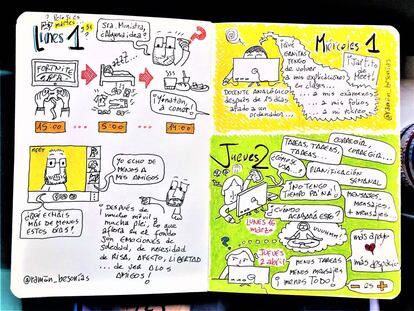 LUNES 1
martes
Sra. Ministra,
¿Alguna idea?
?
FORTNITE
¡Yonatan,
a comer!
15:00 ... 5:00 ... 14:00
MEET
YO ECHO DE
MENOS A
MIS AMIGOS
¿QUÉ ECHÁIS
MÁS DE MENOS
ESTOS DÍAS?
Y DESPUÉS DE
mucho móvil y
mucha play, lo que
aflora en el fondo
son EMOCIONES de
soledad, de necesidad
de RISA, AFECTO, LIBERTAD
... de ver A LOS
AMIGOS!
@ramón_besonías
MIÉRCOLES 1
¡QUÉ
GANITAS
TENGO
DE VOLVER
A mis EXPLICACIONES
EN CLASE...
... A mis EXÁMENES
... A mis FOLIOS
... A mi RECREO...
¡Jartito
de
MEET!
DOCENTE ANALÓGICO
DESPUÉS DE 15 DÍAS
ATADO A UN
ORDENADOR...
@ramón_besonías
JUEVES 2
TAREAS, TAREAS,
TAREAS, TAREAS,
TAREAS...
CORREGIR,
CORREGIR,
CORREGIR...
¿CÓMO SE
USA...?
PLANIFICACIÓN
SEMANAL
¡NO TENGO
TIEMPO PA'NA!
MENSAJES,
MENSAJES,
+ MENSAJES
¿CUÁNDO
ACABARÁ ESTO?
LUNES 16
marzo
JUEVES
2 ABRIL
MENOS TAREAS
MENOS MENSAJES
¡MENOS TODO!
MÁS AFECTO
MÁS DESPACIO
- 25 +